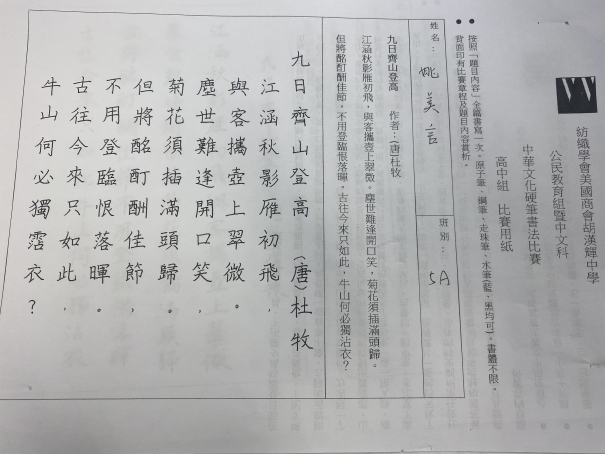 VW
紡織學會美國商會胡漢輝中學
公民教育組暨中文科
中華文化硬筆書法比賽
高中組 比賽用紙
● 按照「題目內容」全篇書寫一次。原子筆、鋼筆、走珠筆、水筆(藍、黑均可)。書體不限。
● 背面印有比賽章程及題目內容賞析。
姓名: 姚美言 班別: 5A
九日齊山登高 作者:(唐)杜牧
江涵秋影雁初飛,與客攜壺上翠微。塵世難逢開口笑,菊花須插滿頭歸。
但將酩酊酬佳節,不用登臨恨落暉。古往今來只如此,牛山何必獨沾衣?
九日齊山登高(唐)杜牧
江涵秋影雁初飛,
與客攜壺上翠微。
塵世難逢開口笑,
菊花須插滿頭歸。
但將酩酊酬佳節,
不用登臨恨落暉。
古往今來只如此,
牛山何必獨霑衣?